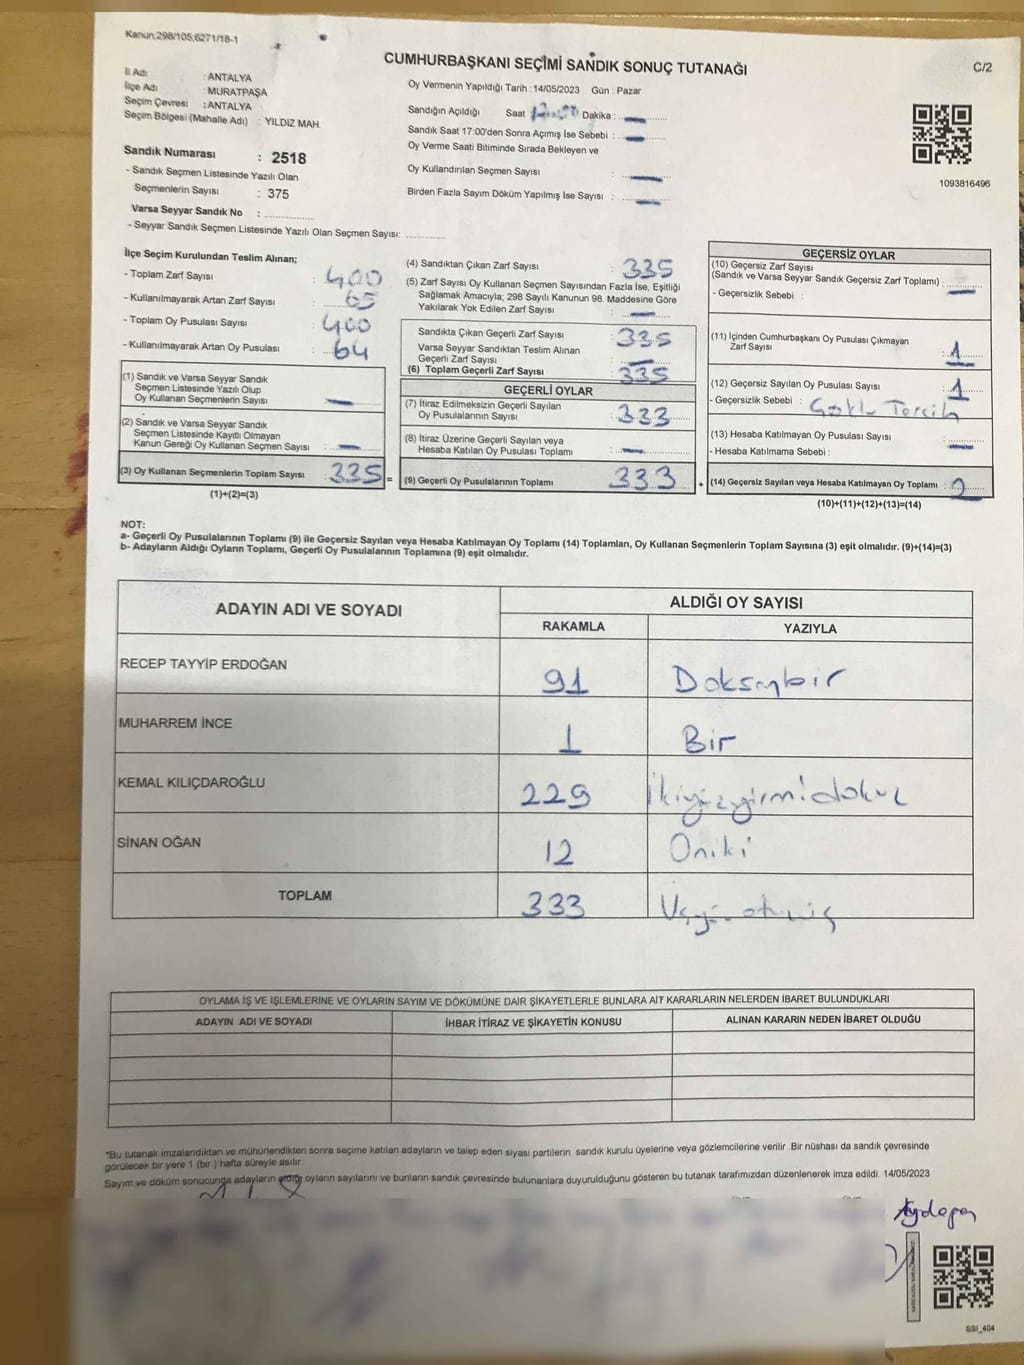 Kanun;298/105;6271/18-1
CUMHURBAŞKANI SEÇİMİ SANDIK SONUÇ TUTANAĞI
C/2
İl Adı : ANTALYA
İlçe Adı : MURATPAŞA
Seçim Çevresi : ANTALYA
Seçim Bölgesi (Mahalle Adı) : YILDIZ MAH
Sandık Numarası : 2518
- Sandık Seçmen Listesinde Yazılı Olan
Seçmenlerin Sayısı : 375
Varsa Seyyar Sandık No :
- Seyyar Sandık Seçmen Listesinde Yazılı Olan Seçmen Sayısı:
Oy Vermenin Yapıldığı Tarih : 14/05/2023 Gün : Pazar
Sandığın Açıldığı Saat Dakika : —
Sandık Saat 17:00'den Sonra Açımış İse Sebebi : —
Oy Verme Saati Bitiminde Sırada Bekleyen ve
Oy Kullandırılan Seçmen Sayısı : —
Birden Fazla Sayım Döküm Yapılmış İse Sayısı : —
1093816496
İlçe Seçim Kurulundan Teslim Alınan;
- Toplam Zarf Sayısı : 400
- Kullanılmayarak Artan Zarf Sayısı : 65
- Toplam Oy Pusulası Sayısı : 400
- Kullanılmayarak Artan Oy Pusulası : 64
(1) Sandık ve Varsa Seyyar Sandık
Seçmen Listesinde Yazılı Olup
Oy Kullanan Seçmenlerin Sayısı : —
(2) Sandık ve Varsa Seyyar Sandık
Seçmen Listesinde Kayıtlı Olmayan
Kanun Gereği Oy Kullanan Seçmen Sayısı : —
(3) Oy Kullanan Seçmenlerin Toplam Sayısı 335
(1)+(2)=(3)
(4) Sandıktan Çıkan Zarf Sayısı : 335
(5) Zarf Sayısı Oy Kullanan Seçmen Sayısından Fazla İse, Eşitliği
Sağlamak Amacıyla; 298 Sayılı Kanunun 98. Maddesine Göre
Yakılarak Yok Edilen Zarf Sayısı : —
Sandıkta Çıkan Geçerli Zarf Sayısı : 335
Varsa Seyyar Sandıktan Teslim Alınan
Geçerli Zarf Sayısı : —
(6) Toplam Geçerli Zarf Sayısı : 335
GEÇERLİ OYLAR
(7) İtiraz Edilmeksizin Geçerli Sayılan
Oy Pusulalarının Sayısı : 333
(8) İtiraz Üzerine Geçerli Sayılan veya
Hesaba Katılan Oy Pusulası Toplamı : —
= (9) Geçerli Oy Pusulalarının Toplamı 333 +
GEÇERSİZ OYLAR
(10) Geçersiz Zarf Sayısı
(Sandık ve Varsa Seyyar Sandık Geçersiz Zarf Toplamı) : —
- Geçersizlik Sebebi :
(11) İçinden Cumhurbaşkanı Oy Pusulası Çıkmayan
Zarf Sayısı : 1
(12) Geçersiz Sayılan Oy Pusulası Sayısı : 1
- Geçersizlik Sebebi : Çoklu Tercih
(13) Hesaba Katılmayan Oy Pusulası Sayısı : —
- Hesaba Katılmama Sebebi :
(14) Geçersiz Sayılan veya Hesaba Katılmayan Oy Toplamı : 2
(10)+(11)+(12)+(13)=(14)
NOT:
a- Geçerli Oy Pusulalarının Toplamı (9) ile Geçersiz Sayılan veya Hesaba Katılmayan Oy Toplamı (14) Toplamları, Oy Kullanan Seçmenlerin Toplam Sayısına (3) eşit olmalıdır. (9)+(14)=(3)
b- Adayların Aldığı Oyların Toplamı, Geçerli Oy Pusulalarının Toplamına (9) eşit olmalıdır.
ADAYIN ADI VE SOYADI
ALDIĞI OY SAYISI
RAKAMLA YAZIYLA
RECEP TAYYİP ERDOĞAN 91 Doksanbir
MUHARREM İNCE 1 Bir
KEMAL KILIÇDAROĞLU 229 İkiyüzyirmidokuz
SİNAN OĞAN 12 Oniki
TOPLAM 333
OYLAMA İŞ VE İŞLEMLERİNE VE OYLARIN SAYIM VE DÖKÜMÜNE DAİR ŞİKAYETLERLE BUNLARA AİT KARARLARIN NELERDEN İBARET BULUNDUKLARI
ADAYIN ADI VE SOYADI İHBAR İTİRAZ VE ŞİKAYETİN KONUSU ALINAN KARARIN NEDEN İBARET OLDUĞU
*Bu tutanak imzalandıktan ve mühürlendikten sonra seçime katılan adayların ve talep eden siyasi partilerin sandık kurulu üyelerine veya gözlemcilerine verilir Bir nüshası da sandık çevresinde
görülecek bir yere 1 (bir ) hafta süreyle asılır.
Sayım ve döküm sonucunda adayların aldığı oyların sayılarını ve bunların sandık çevresinde bulunanlara duyurulduğunu gösteren bu tutanak tarafımızdan düzenlenerek imza edildi. 14/05/2023
SSI_404